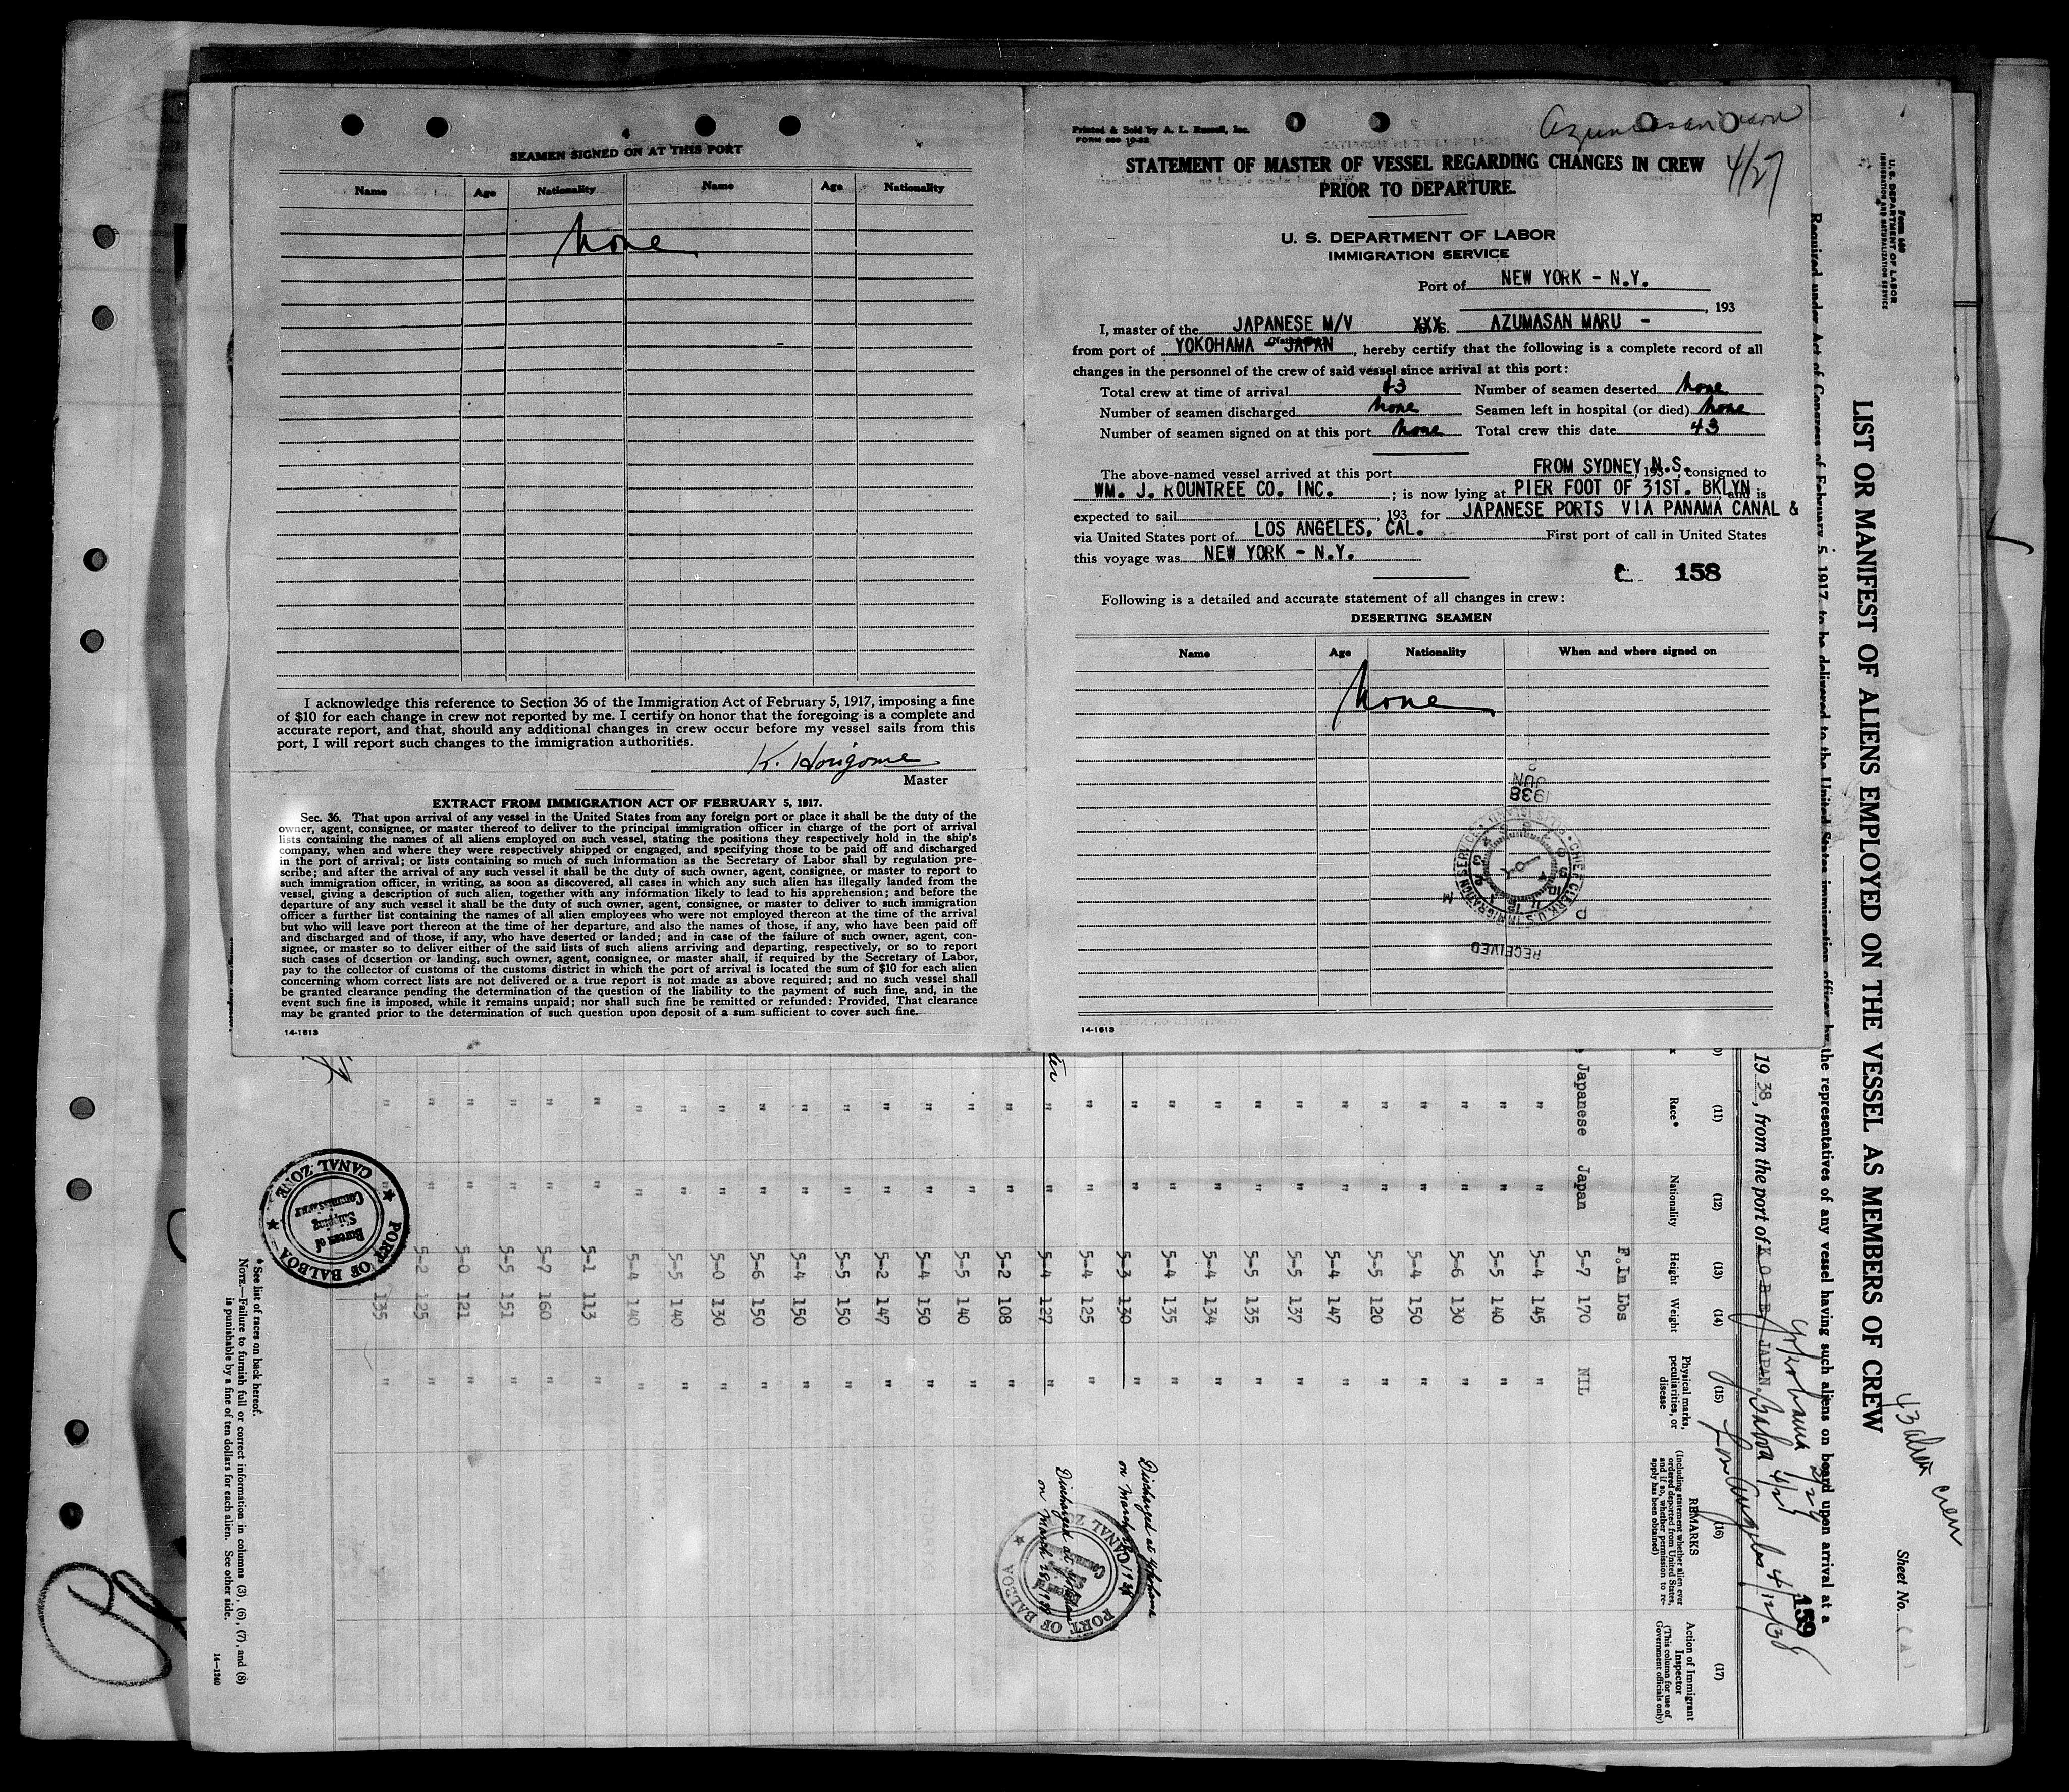 SEAMEN SIGNED ON AT THIS PORT
Name Age Nationality Name Age Nationality
None
I acknowledge this reference to Section 36 of the Immigration Act of February 5, 1917, imposing a fine
of $10 for each change in crew not reported by me. I certify on honor that the foregoing is a complete and
accurate report, and that, should any additional changes in crew occur before my vessel sails from this
port, I will report such changes to the immigration authorities.
K. Horigome
Master
EXTRACT FROM IMMIGRATION ACT OF FEBRUARY 5, 1917.
Sec. 36. That upon arrival of any vessel in the United States from any foreign port or place it shall be the duty of the
owner, agent, consignee, or master thereof to deliver to the principal immigration officer in charge of the port of arrival
lists containing the names of all aliens employed on such vessel, stating the positions they respectively hold in the ship's
company, when and where they were respectively shipped or engaged, and specifying those to be paid off and discharged
in the port of arrival; or lists containing so much of such information as the Secretary of Labor shall by regulation pre-
scribe; and after the arrival of any such vessel it shall be the duty of such owner, agent, consignee, or master to report to
such immigration officer, in writing, as soon as discovered, all cases in which any such alien has illegally landed from the
vessel, giving a description of such alien, together with any information likely to lead to his apprehension; and before the
departure of any such vessel it shall be the duty of such owner, agent, consignee, or master to deliver to such immigration
officer a further list containing the names of all alien employees who were not employed thereon at the time of the arrival
but who will leave port thereon at the time of her departure, and also the names of those, if any, who have been paid off
and discharged and of those, if any, who have deserted or landed; and in case of the failure of such owner, agent, con-
signee, or master so to deliver either of the said lists of such aliens arriving and departing, respectively, or so to report
such cases of desertion or landing, such owner, agent, consignee, or master shall, if required by the Secretary of Labor,
pay to the collector of customs of the customs district in which the port of arrival is located the sum of $10 for each alien
concerning whom correct lists are not delivered or a true report is not made as above required; and no such vessel shall
be granted clearance pending the determination of the question of the liability to the payment of such fine, and, in the
event such fine is imposed, while it remains unpaid; nor shall such fine be remitted or refunded: Provided, That clearance
may be granted prior to the determination of such question upon deposit of a sum sufficient to cover such fine.
14-1613
Printed & Sold by A. L. Russell, Inc.
FORM 689 10-32
Azumasan Maru
4/27
STATEMENT OF MASTER OF VESSEL REGARDING CHANGES IN CREW
PRIOR TO DEPARTURE.
U. S. DEPARTMENT OF LABOR
IMMIGRATION SERVICE
Port of NEW YORK - N.Y.
, 193
I, master of the JAPANESE M/V XXX S. AZUMASAN MARU -
from port of YOKOHAMA - JAPAN, hereby certify that the following is a complete record of all
changes in the personnel of the crew of said vessel since arrival at this port:
Total crew at time of arrival 43 Number of seamen deserted None
Number of seamen discharged None Seamen left in hospital (or died) None
Number of seamen signed on at this port None Total crew this date 43
The above-named vessel arrived at this port FROM SYDNEY N.S. , 193 consigned to
WM. J. ROUNTREE CO. INC. ; is now lying at PIER FOOT OF 31ST. BKLYN and is
expected to sail , 193 for JAPANESE PORTS VIA PANAMA CANAL &
via United States port of LOS ANGELES, CAL. First port of call in United States
this voyage was NEW YORK - N.Y.
158
Following is a detailed and accurate statement of all changes in crew:
DESERTING SEAMEN
Name Age Nationality When and where signed on
None
JUN
1938
CHIEF CLERK U.S. IMMIGRATION SERVICE
RECEIVED
P M
14-1613
Form 689
U. S. DEPARTMENT OF LABOR
IMMIGRATION AND NATURALIZATION SERVICE
43 alien crew
Sheet No.
LIST OR MANIFEST OF ALIENS EMPLOYED ON THE VESSEL AS MEMBERS OF CREW
Required under Act of Congress of February 5, 1917, to be delivered to the United States immigration officer by the representatives of any vessel having such aliens on board upon arrival at a
159
Yokohama
1938, from the port of KOBE, JAPAN. Balboa 4/25
Los Angeles 4/12/38
(11) (12) (13) (14) (15) (16) (17)
Race* Nationality Height Weight
Physical marks, peculiarities, or disease
REMARKS
(Including statement whether alien ever ordered deported from United States, and if so, whether permission to re-apply has been obtained)
Action of Immigrant Inspector
(This column for use of Government officials only)
F. In Lbs
Japanese Japan 5-7 170 NIL
" " 5-4 145 "
" " 5-5 140 "
" " 5-6 130 "
" " 5-4 150 "
" " 5-5 120 "
" " 5-4 147 "
" " 5-5 137 "
" " 5-5 135 "
" " 5-4 134 "
" " 5-4 135 "
" " 5-3 130 " Discharged at Yokohama
on March
" " 5-4 125 "
" " 5-4 127 " Discharged at
on March
" " 5-2 108 "
" " 5-5 140 "
" " 5-4 150 "
" " 5-2 147 "
" " 5-5 150 "
" " 5-4 150 "
" " 5-6 150 "
" " 5-0 130 "
" " 5-5 140 "
" " 5-4 140 "
" " 5-1 113 "
" " 5-7 160 "
" " 5-5 151 "
" " 5-0 121 "
" " 5-2 125 "
" " 135 "
PORT OF BALBOA
CANAL ZONE
Bureau of
Shipping
Commissioner
PORT OF BALBOA
CANAL ZONE
* See list of races on back hereof.
NOTE.—Failure to furnish full or correct information in columns (3), (6), (7), and (8)
is punishable by a fine of ten dollars for each alien. See other side.
14-1240